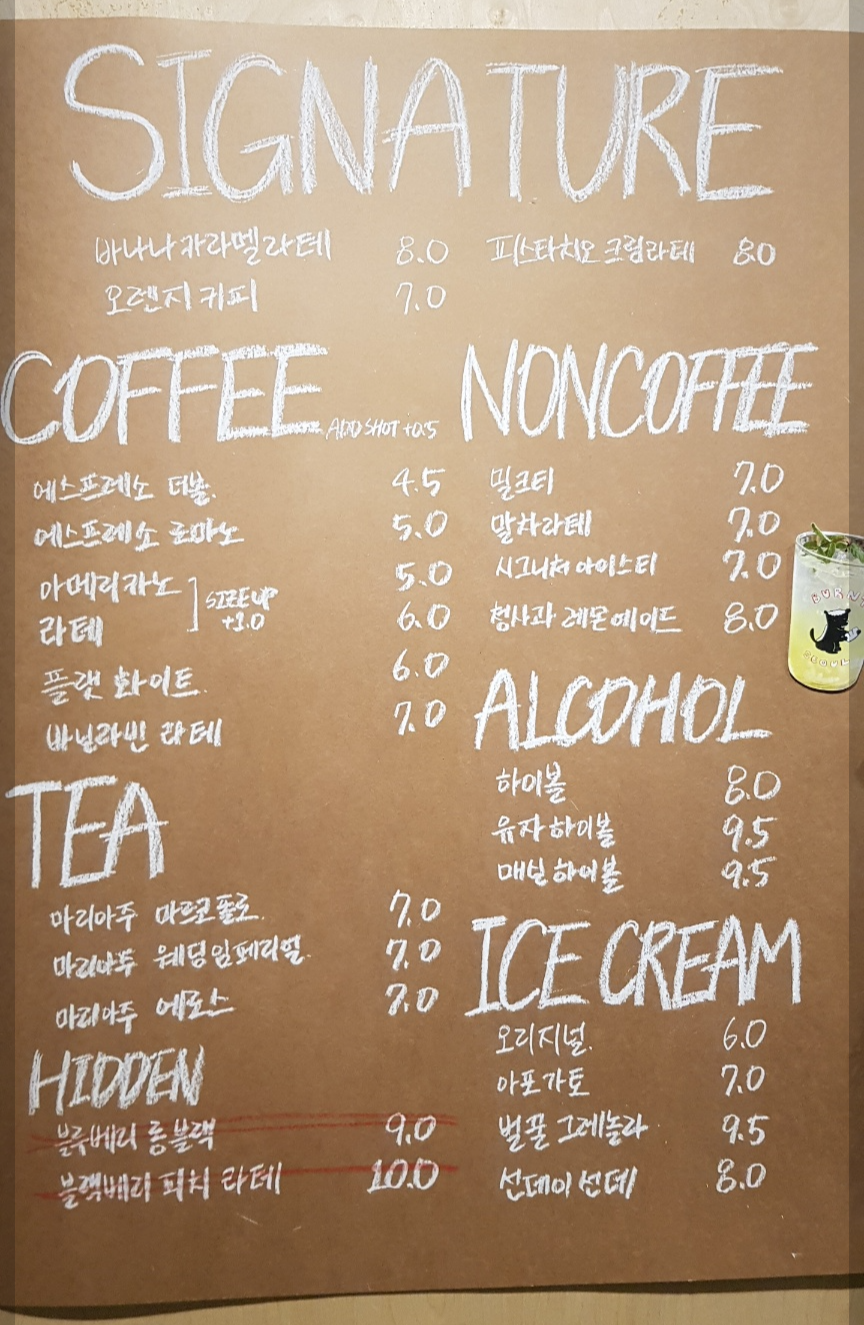 SIGNATURE
바나나카라멜라테 8.0
오렌지커피 7.0
피스타치오 크림라테 8.0
COFFEE ADD SHOT +0.5
에스프레소 더블. 4.5
에스프레소 로마노 5.0
아메리카노 5.0
라테 6.0
SIZE UP
+1.0
플랫 화이트. 6.0
바닐라빈 라테 7.0
TEA
마리아주 마르코폴로. 7.0
마리아주 웨딩임페리얼. 7.0
마리아주 에로스 7.0
HIDDEN
블루베리 롱블랙 9.0
블랙베리 피치 라테 10.0
NONCOFFEE
밀크티 7.0
말차라테 7.0
시그니처 아이스티 7.0
청사과 레몬에이드 8.0
ALCOHOL
하이볼 8.0
유자하이볼 9.5
매실하이볼 9.5
ICE CREAM
오리지널. 6.0
아포가토 7.0
벌꿀 그레놀라 9.5
선데이선데 8.0